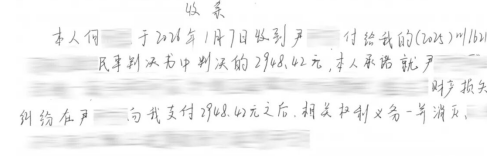 收条
本人何 于2026年1月7日收到尹 付给我的(2025)川1621
民事判决书中判决的2948.42元,本人承诺就尹
财产损失
纠纷在尹 向我支付2948.42元之后,相关权利义务一并消灭。